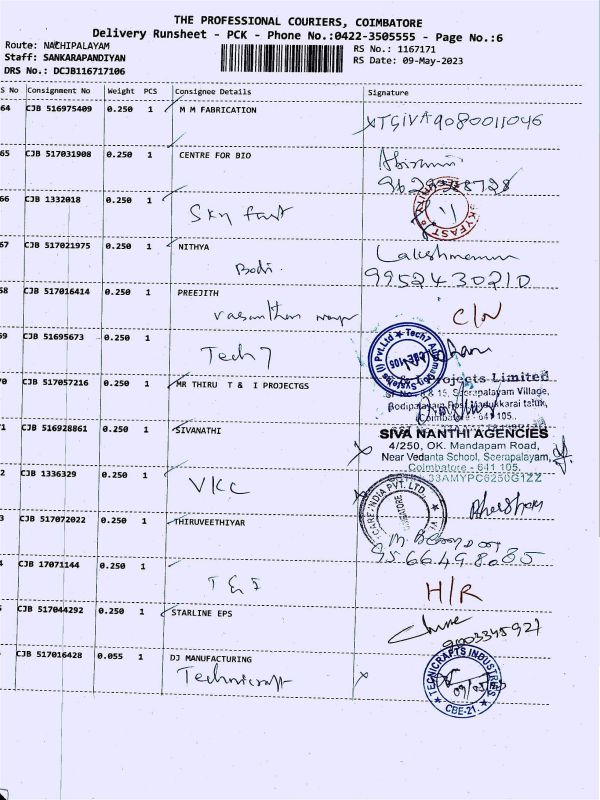 THE PROFESSIONAL COURIERS, COIMBATORE
Delivery Runsheet - PCK - Phone No.:0422-3505555 - Page No.:6
Route: NACHIPALAYAM
RS No.: 1167171
Staff: SANKARAPANDIYAN
RS Date: 09-May-2023
DRS No.: DCJB116717106
S No Consignment No Weight PCS Consignee Details Signature
64 CJB 516975409 0.250 1 M M FABRICATION
9080011046
65 CJB 517031908 0.250 1 CENTRE FOR BIO
66 CJB 1332018 0.250 1
Sky fast
67 CJB 517021975 0.250 1 NITHYA
Bodi.
Lakshmanan
9952430210
68 CJB 517016414 0.250 1 PREEJITH
C/N
69 CJB 51695673 0.250 1
Tech 7
Tech7 Systems (I) Pvt.Ltd
70 CJB 517057216 0.250 1 MR THIRU T & I PROJECTGS
Projects Limited
& 15, Seerapalayam Village,
Bodipalayam Post, Madukkarai taluk,
Coimbatore - 641 105.
71 CJB 516928861 0.250 1 SIVANATHI
SIVA NANTHI AGENCIES
4/250, OK. Mandapam Road,
Near Vedanta School, Seerapalayam,
Coimbatore - 641 105.
33AMYPC6250G1ZZ
2 CJB 1336329 0.250 1
VKC
CARE INDIA PVT. LTD.
3 CJB 517072022 0.250 1 THIRUVEETHIYAR
9566498085
4 CJB 17071144 0.250 1
T & I
H/R
CJB 517044292 0.250 1 STARLINE EPS
9003345927
CJB 517016428 0.055 1 DJ MANUFACTURING
Technicraft
TECNICRAFTS INDUSTRIES
CBE-21.